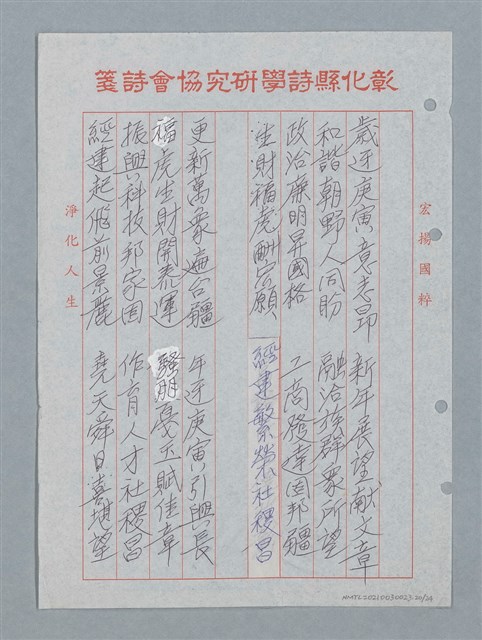 彰化縣詩學研究協會詩箋
宏揚國粹
歲逆庚寅意志昂 新年展望献文章
和諧朝野人同盼 融洽族群眾所望
政治廉明昇國格 工商發達固邦疆
生財福虎酬宗願 經建繁榮社稷昌
更新萬象遍台疆 年逆庚寅引興長
福虎生財開泰運 騷朋戞玉賦佳章
振興科技邦家固 作育人才社稷昌
經建起飛前景麗 堯天舜日喜堪望
淨化人生